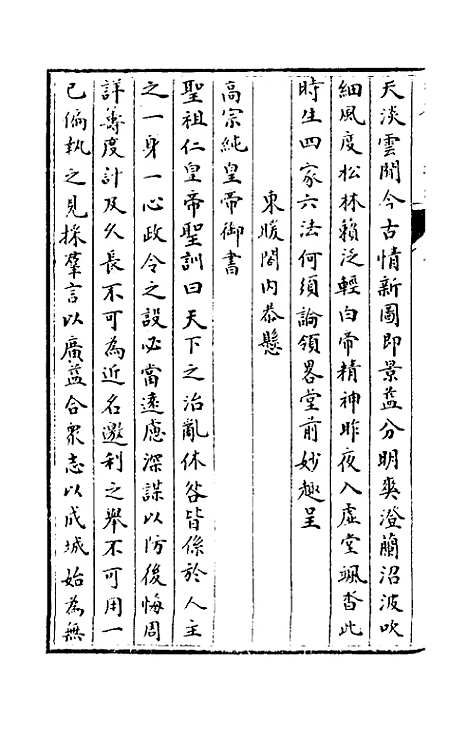 天淡雲閒今古情新圖即景益分明爽澄蘭沼波吹
細風度松林籟泛輕白帝精神昨夜入虛堂颯杳此
時生四家六法何須論領畧堂前妙趣呈
東暖閣内恭懸
高宗純皇帝御書
聖祖仁皇帝聖訓曰天下之治亂休咎皆係於人主
之一身一心政令之設必當遠慮深謀以防後悔周
詳籌度計及久長不可為近名邀利之舉不可用一
己偏執之見採羣言以廣益合衆志以成城始為無